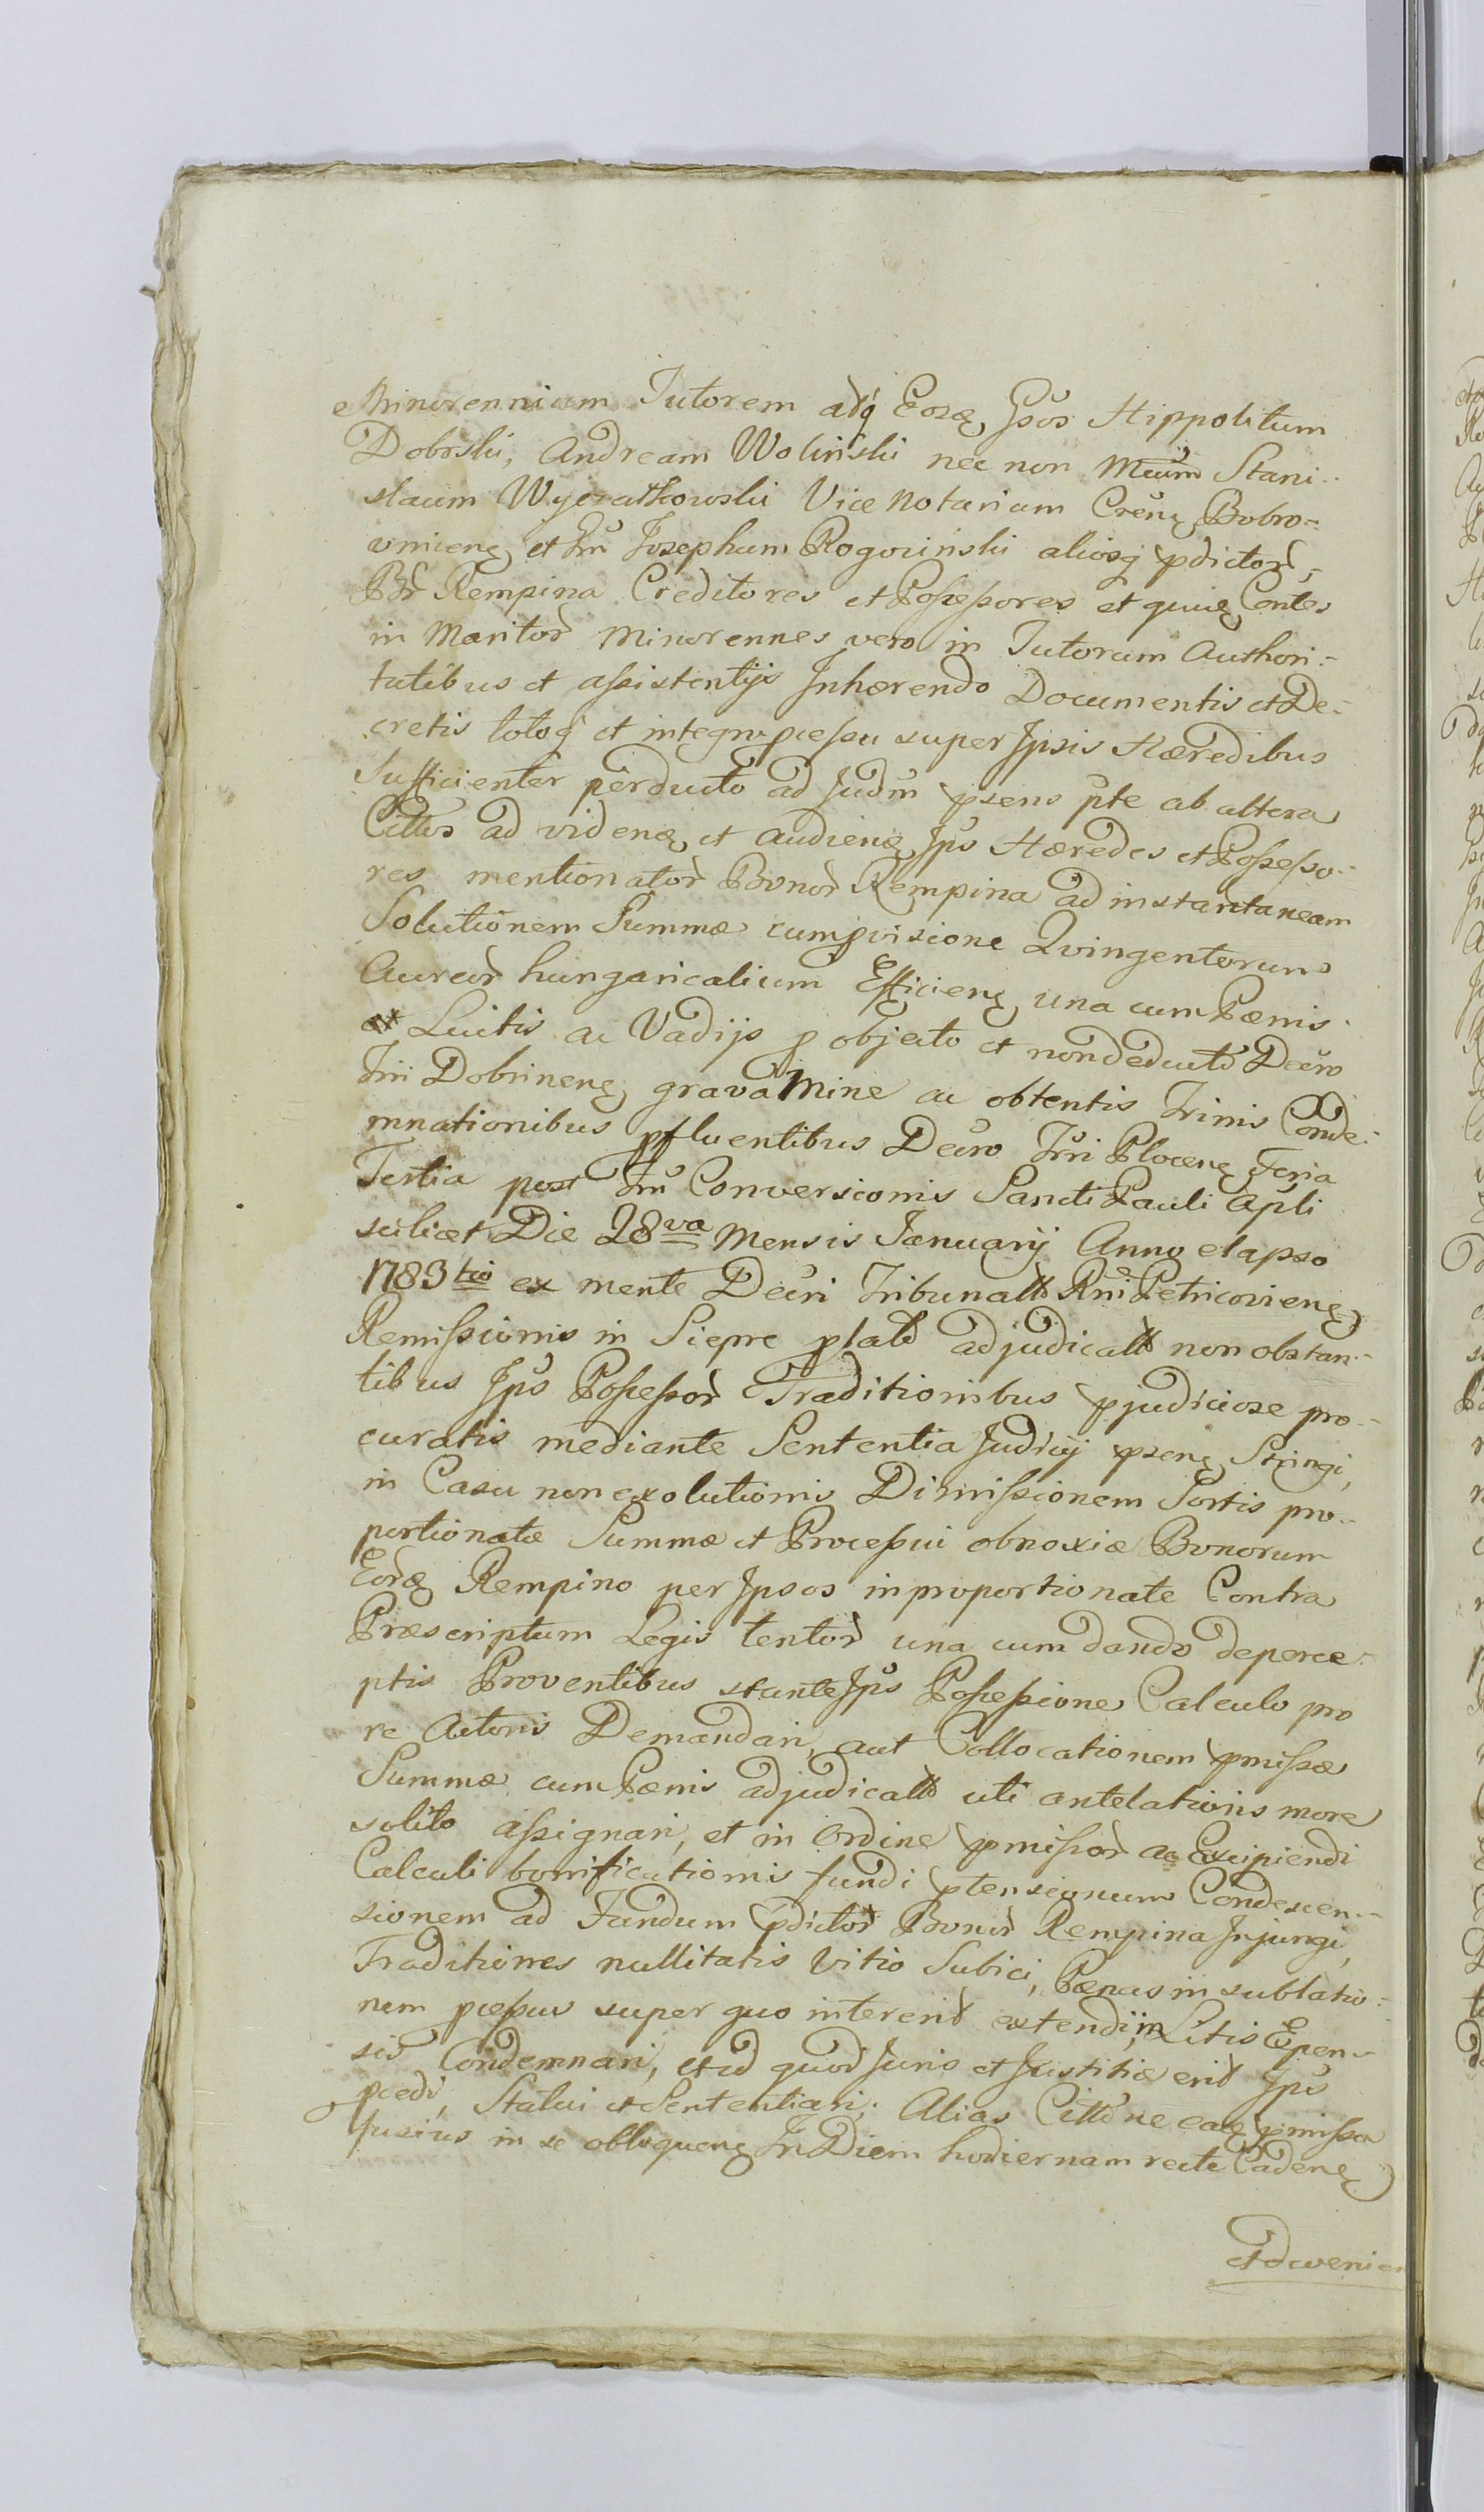 Minorennium Tutorem atq Eosq Gsos Hippolitum
Dobrski, Andream Wolinski nec non Mcum Stani-
slaum Wyczatkowski Vice Notarium Crenq Bobro-
wnicenq et Gm Josephum Rogozinski aliosq pdictor
Bor Rempina Creditores et Possessores et quiq Contes
in Maritor Minorennes vero in Tutorum Authori-
tatibus et assistentijs Inhærendo Documentis et De-
cretis totoq et integro pcessu super Ipsis Hæredibus
Sufficienter perducto ad Judm psens pte ab altera
Cittos ad videnq et Audienq Ips Hæredes et Possesso-
res mentionator Bonor Rempina ad instantaneam
Solutionem Summæ cum pvisione Qvingentorum
Aureor hungaricalium Efficienq una cum Pænis
et Luitis ac Vadijs p objecto et non deducto Decro
Tri Dobrinenq gravamine ac obtentis Trinis Conde-
mnationibus pfluentibus Decro Tri Plocenq Feria
Tertia post Fm Conversionis Sancti Pauli Apli
scilicet Die 28va Mensis Januarij Anno elapso
1783tio ex mente Decri Tribunalis Rni Petricovienq
Remissionis in Siepre plato adjudicatis non obstan-
tibus Ips Possessor Traditionibus pjudiciose pro-
curatis mediante Sententia Judicij psenq Stringi,
in Casu non exolutionis Dimissionem Sortis pro-
portionatæ Summæ et Processui obnoxiæ Bonorum
Eorq Rempino per Ipsos inproportionate Contra
Præscriptum Legis tentor una cum dando de perce-
ptis Proventibus stante Ips Possessione Calculo pro
re Actoris Demandari, aut Collocationem pmissæ
Summæ cum Pænis adjudicatis uti antelationis more
solito assignari, et in Ordine pmissor ac Excipiendi
Calculi bonificationis fundi ptensionum Condescen-
sionem ad Fundum pdictor Bonor Rempina Injungi,
Traditiones nullitatis vitio Subici, Pænas in sublatio-
nem pcessus super quo intererit extendi, in Litis Expen-
sis Condemnari, et id quod Juris et Justitiæ erit Ips
pcedi, Statui et Sententiari. Alias Cittone eaq pmissa
fusius in se obloquenq In Diem hodiernam recte Cadenq
Adveni